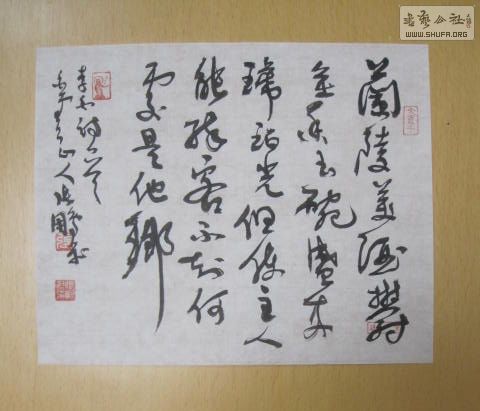 蘭陵美酒鬱
金香玉碗盛来
琥珀光但使主人
能醉客不知何
處是他鄉
李白詩一首
山人
書藝公社
WWW.SHUFA.ORG